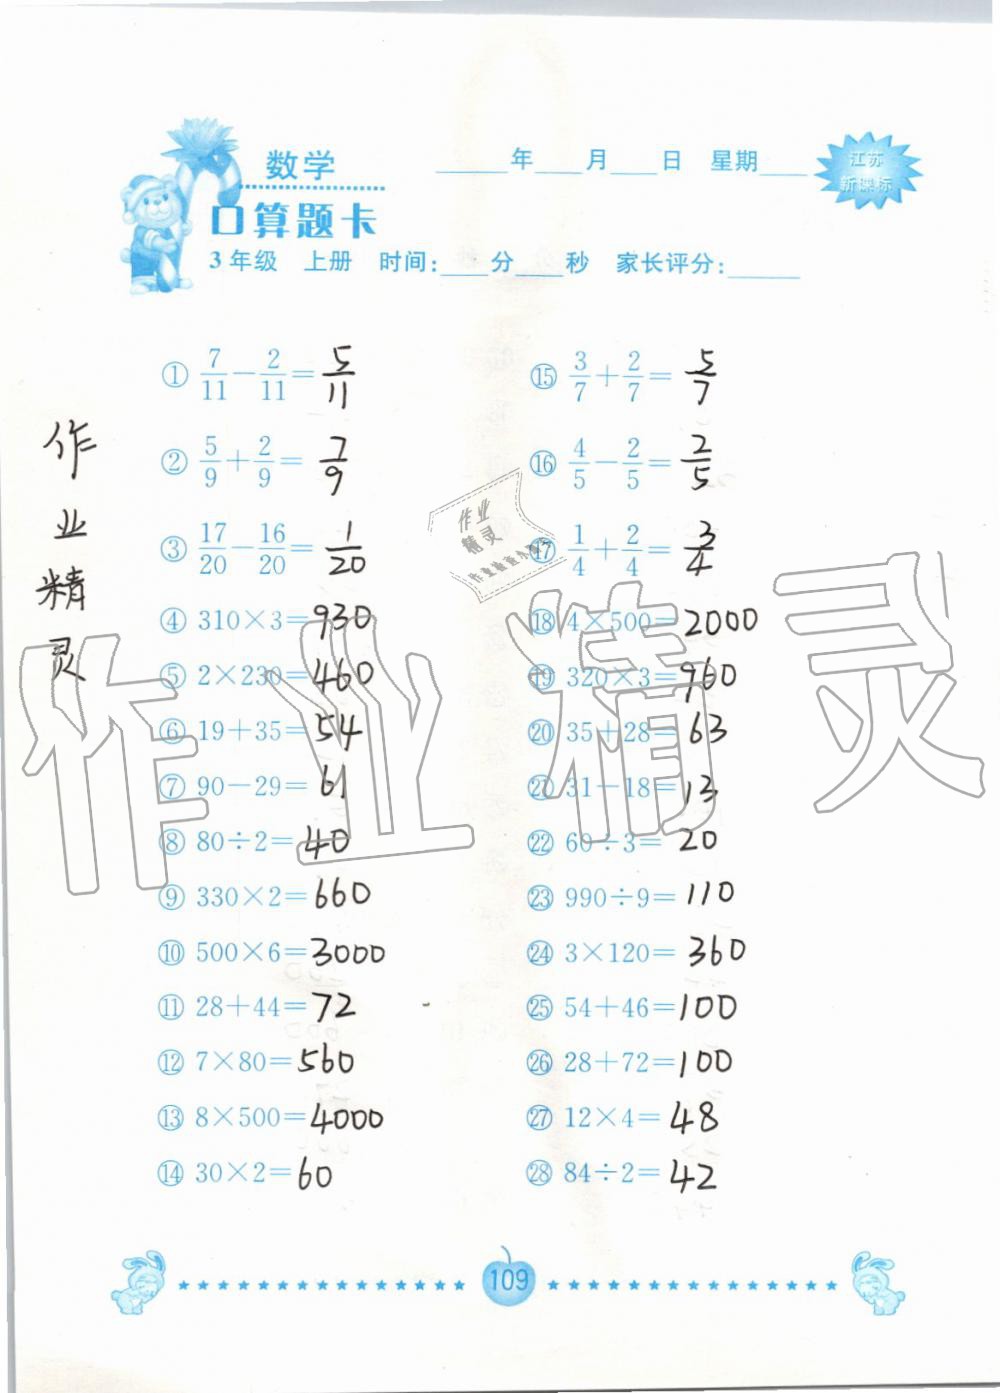 数学
____年____月____日 星期____
江苏
新课标
口算题卡
3年级 上册 时间:____分____秒 家长评分:____
作业精灵
① 7/11－2/11＝5/11
② 5/9＋2/9＝7/9
③ 17/20－16/20＝1/20
④ 310×3＝930
⑤ 2×230＝460
⑥ 19＋35＝54
⑦ 90－29＝61
⑧ 80÷2＝40
⑨ 330×2＝660
⑩ 500×6＝3000
⑪ 28＋44＝72
⑫ 7×80＝560
⑬ 8×500＝4000
⑭ 30×2＝60
⑮ 3/7＋2/7＝5/7
⑯ 4/5－2/5＝2/5
⑰ 1/4＋2/4＝3/4
⑱ 4×500＝2000
⑲ 320×3＝960
⑳ 35＋28＝63
㉑ 31－18＝13
㉒ 60÷3＝20
㉓ 990÷9＝110
㉔ 3×120＝360
㉕ 54＋46＝100
㉖ 28＋72＝100
㉗ 12×4＝48
㉘ 84÷2＝42
作业
精灵
作业精灵
109